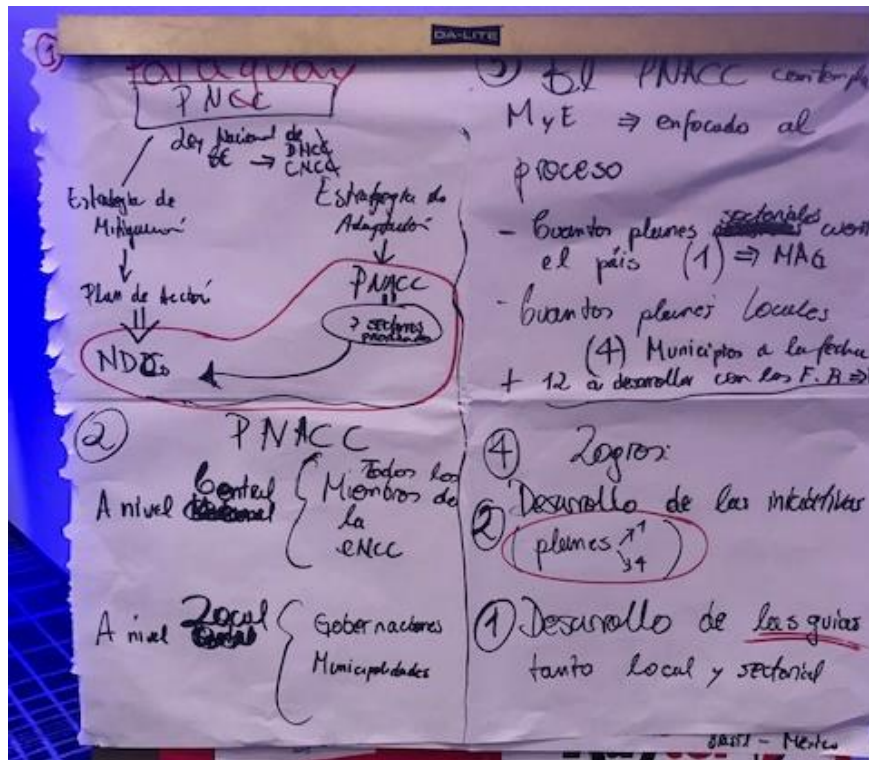 DA-LITE
①
Paraguay
PNCC
Ley Nacional de
CC → DNCC
CNCC
Estrategia de
Mitigación
Plan de Acción
NDCs
Estrategia de
Adaptación
PNACC
7 sectores
priorizados
②
PNACC
A nivel Central
Todos los
Miembros de
la
CNCC
A nivel Local
Gobernaciones
Municipalidades
③ El PNACC contempla
MyE ⇒ enfocado al
proceso
- Cuantos planes sectoriales
el país (1) ⇒ MAG
- Cuantos planes Locales
(4) Municipios a la fecha
+ 12 a desarrollar con los F.R ⇒
④ Logros:
② Desarrollo de las iniciativas
(planes ↗1
↘4)
① Desarrollo de las guias
tanto local y sectorial
BRASIL - México